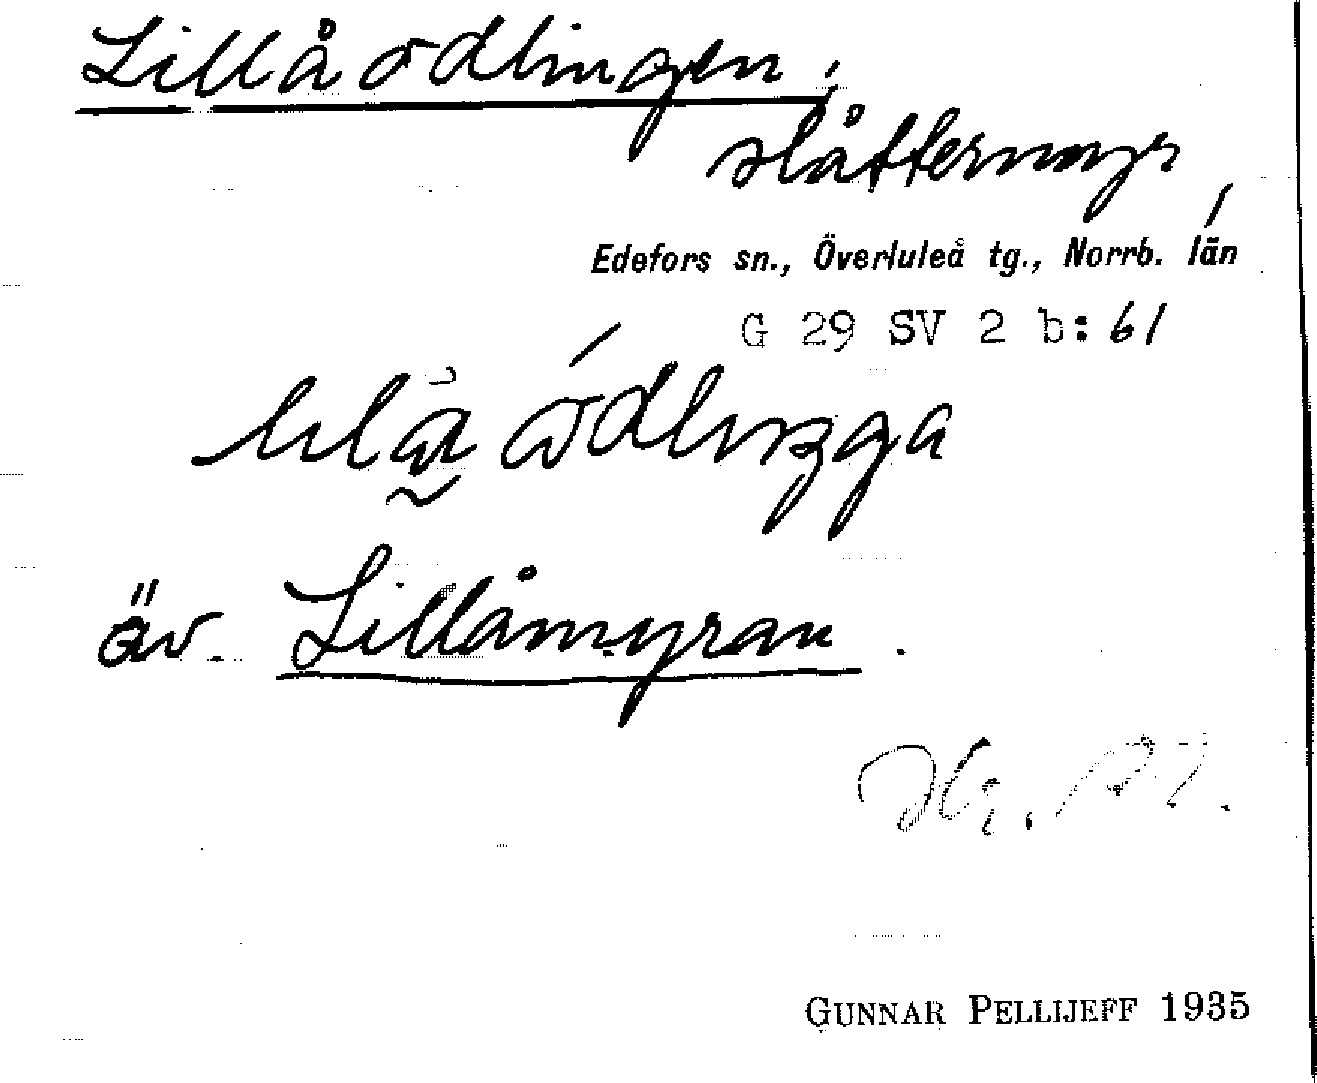 Lillåodlingen,
slåttermyr
Edefors sn., Överluleå tg., Norrb. län
G 29 SV 2 b: 61
äv. Lillåmyran.
GUNNAR PELLIJEFF 1935